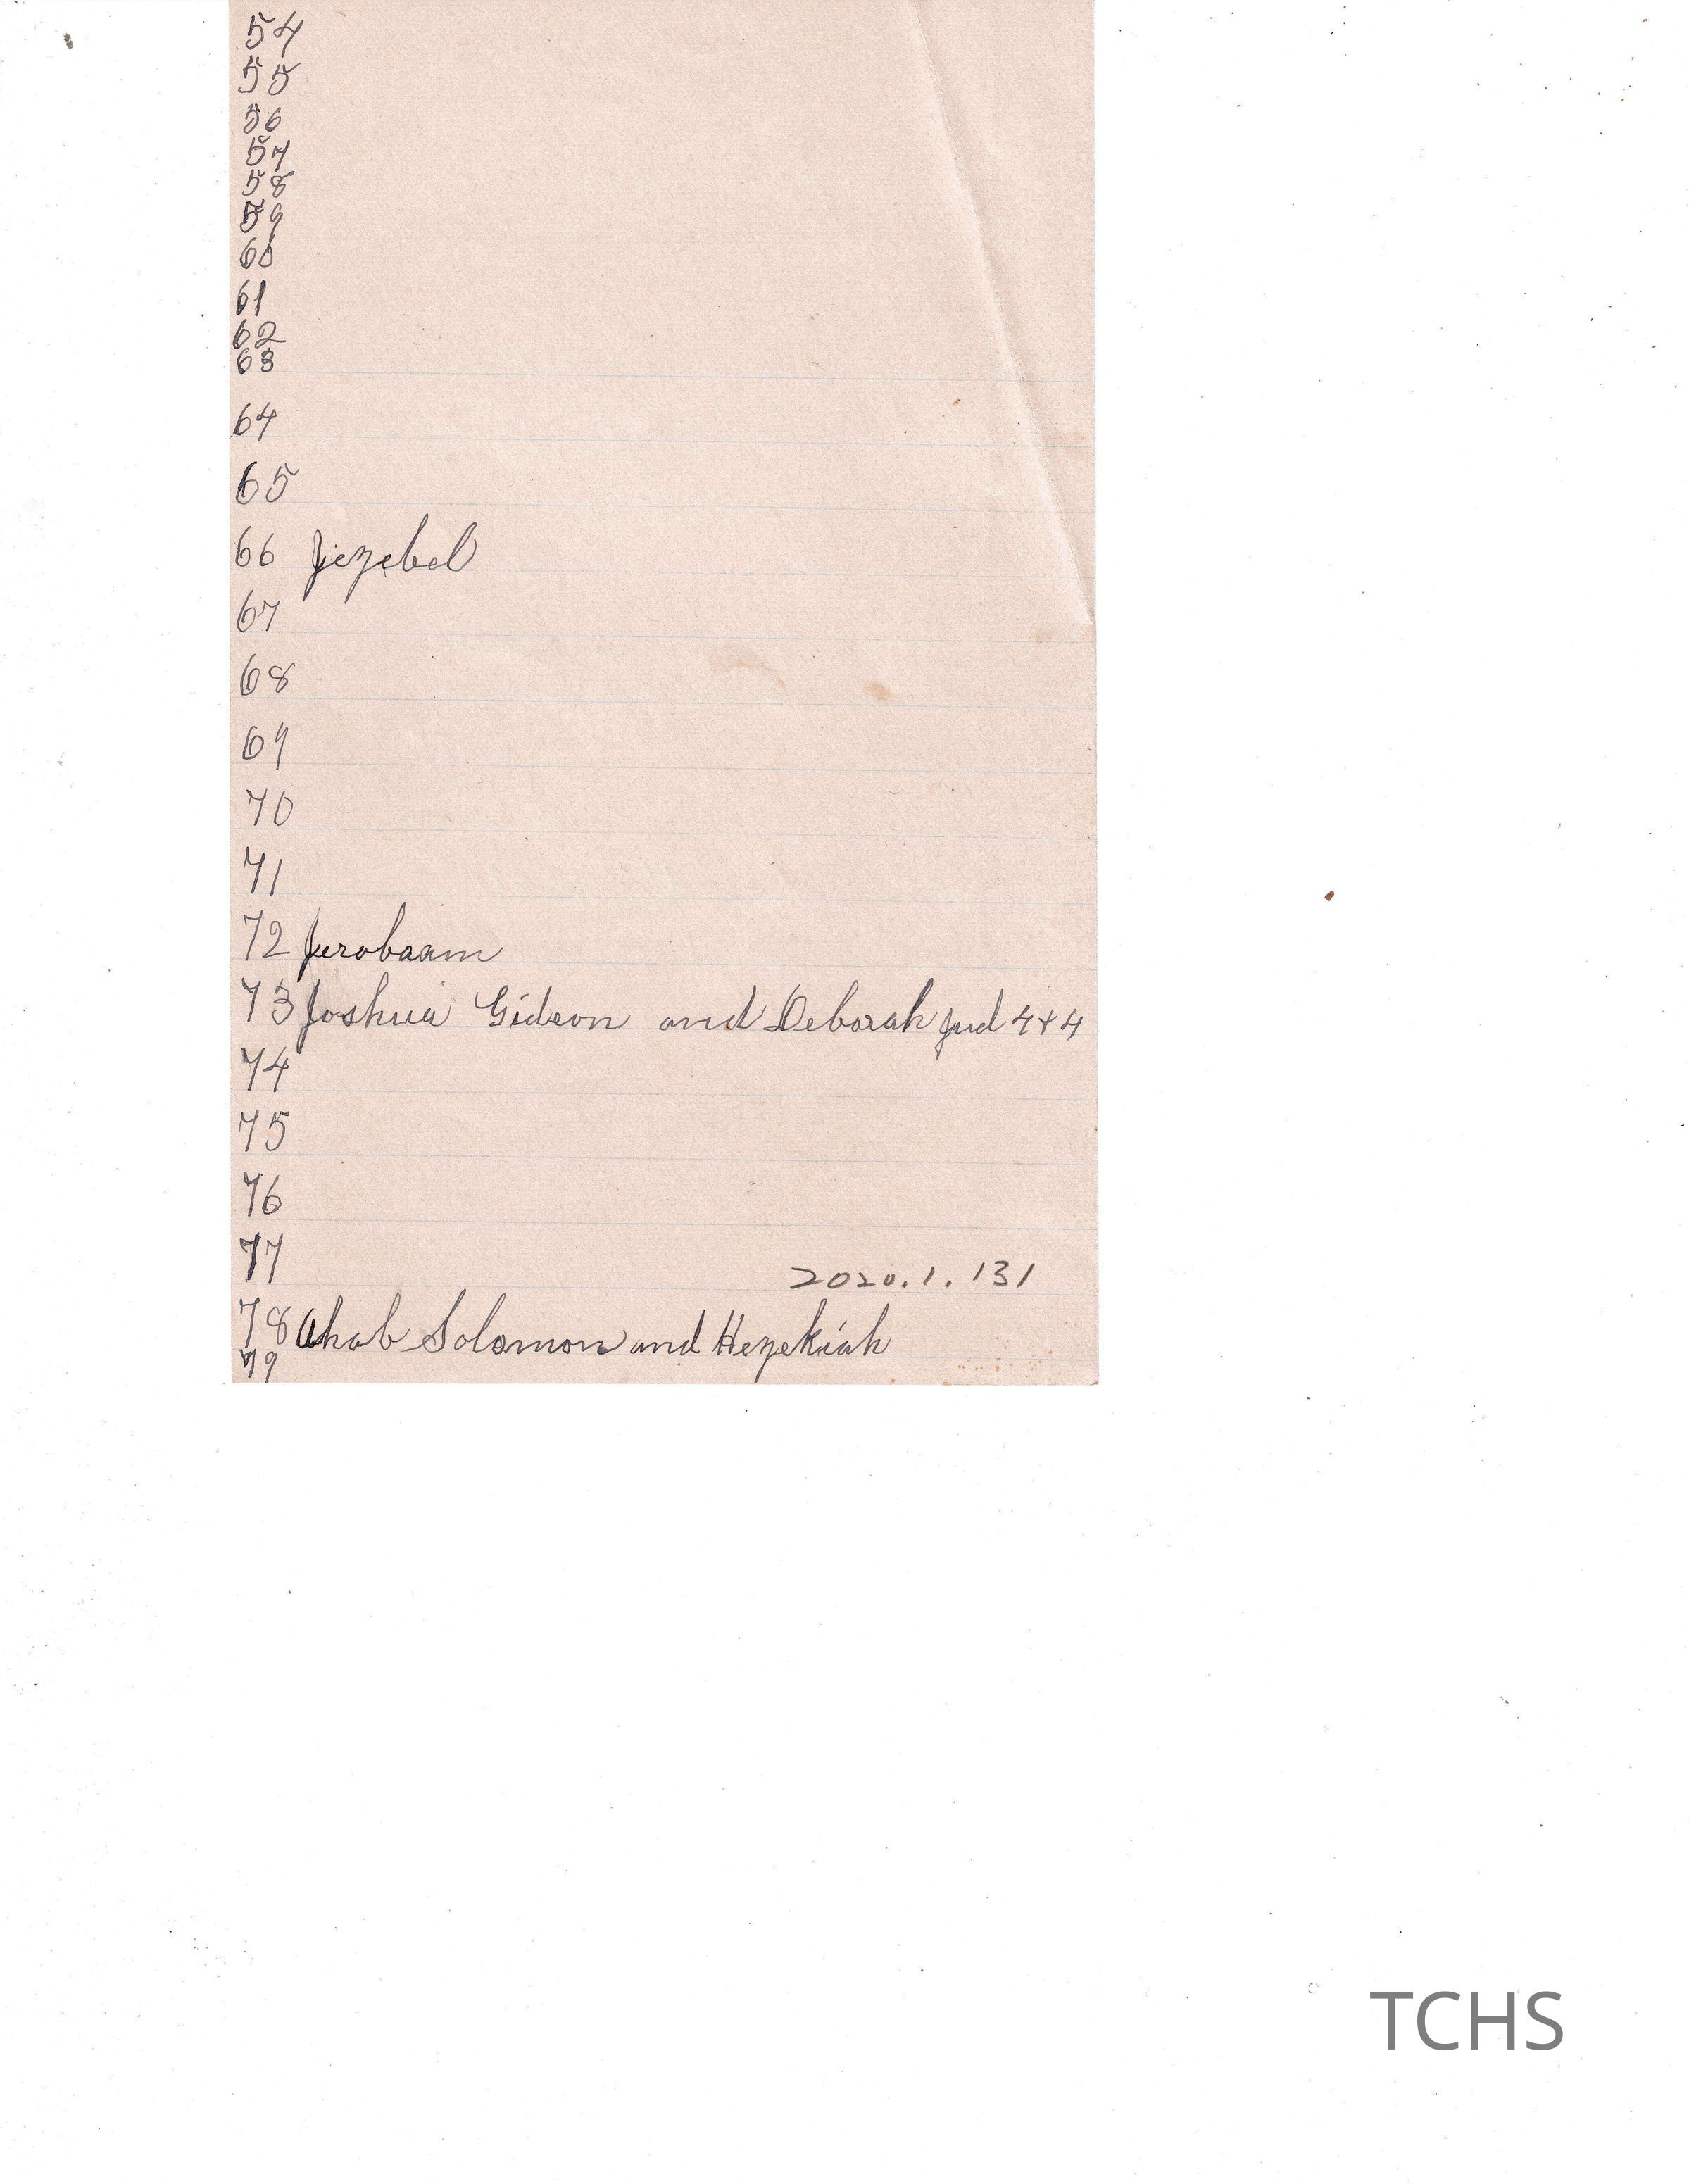 54
55
56
57
58
59
60
61
62
63
64
65
66 Jezebel
67
68
69
70
71
72 Jerobaam
73 Joshua Gideon and Deborah Jud 4+4
74
75
76
77
2020.1.131
78 Ahab Solomon and Hezekiah
79
TCHS